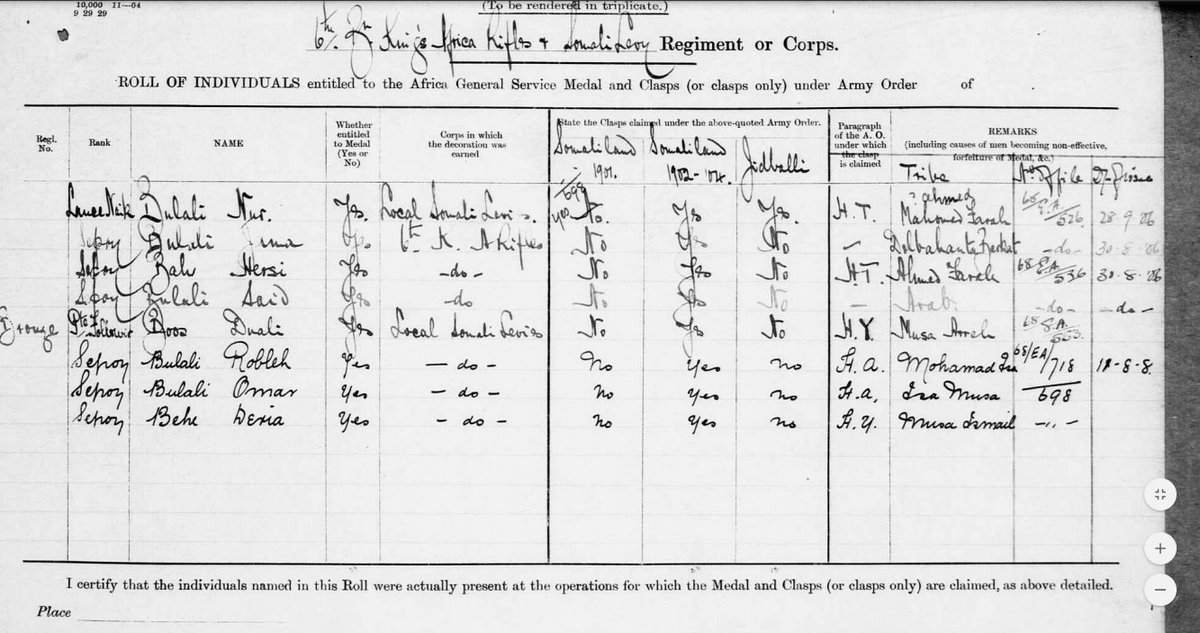 10,000 11—04
9 29 29
(To be rendered in triplicate.)
6th. Bn King's Africa Rifles & Somali Levy Regiment or Corps.
ROLL OF INDIVIDUALS entitled to the Africa General Service Medal and Clasps (or clasps only) under Army Order of
Regl. No. Rank NAME Whether entitled to Medal (Yes or No) Corps in which the decoration was earned State the Clasps claimed under the above-quoted Army Order. Paragraph of the A. O. under which the clasp is claimed REMARKS (including causes of men becoming non-effective, forfeiture of Medal, &c.)
Somaliland 1901. Somaliland 1902-'04. Jidballi Tribe No. of file
698
Lance Naik Bulali Nur. Yes. Local Somali Levies. yes No. Yes Yes. H.T. ? Ahmed Mahomed Farah 68/E.A./526 28-9-'06
Sepoy Bulali 6th K. A Rifles No Yes No — Dolbahanta -do- 30-8-'06
Sepoy Hersi Yes -do- No Yes No H.T. Ahmed Farah 68/E.A./536 30-8-'06
Sepoy Bulali Said Yes -do No Yes No — Arab -do- -do-
Follower Doos Duali Yes Local Somali Levies No Yes No H.Y. Musa Arreh 68/E.A./553
Sepoy Bulali Robleh Yes -do- No Yes no H.A. Mohamad 68/EA/718 11-8-8.
Sepoy Bulali Omar Yes -do- no Yes no H.A. Isa Musa 698
Sepoy Behe Deria Yes -do- no Yes no H.Y. Musa Ismail -"-
I certify that the individuals named in this Roll were actually present at the operations for which the Medal and Clasps (or clasps only) are claimed, as above detailed.
Place